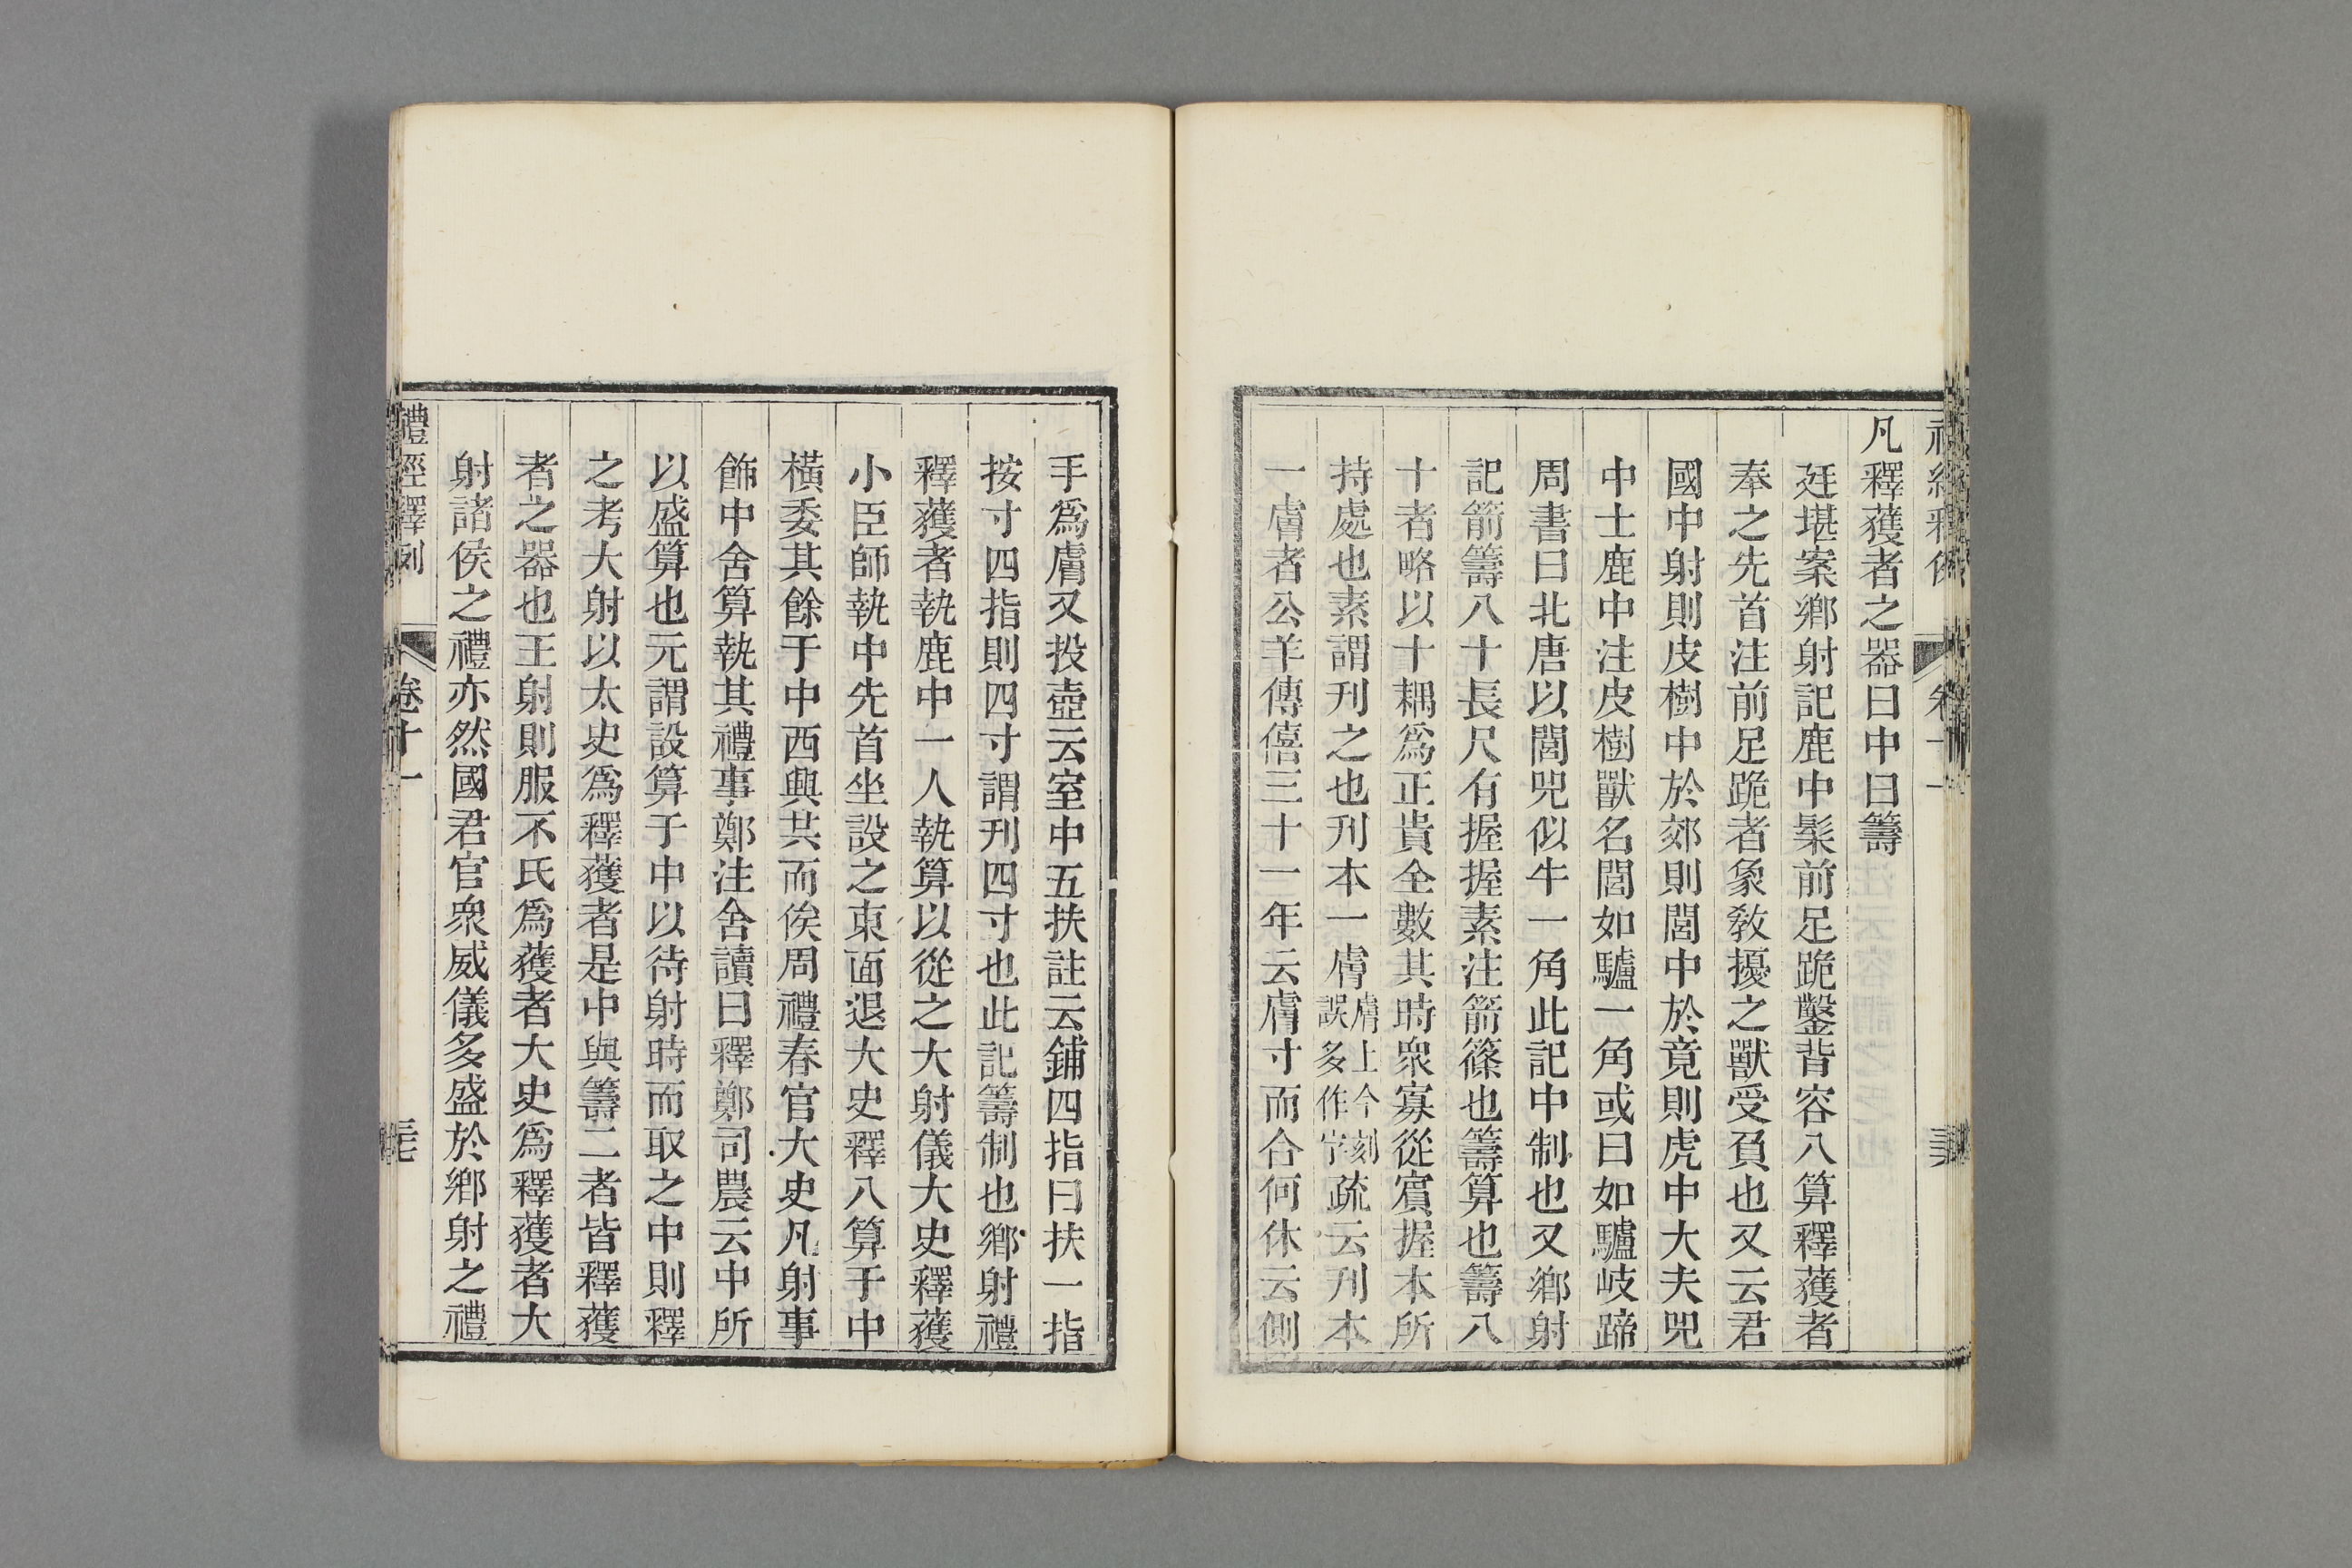 凡釋獲者之器曰中曰籌
廷堪案鄉射記鹿中髹前足跪鑿背容八算釋獲者
奉之先首注前足跪者象敎擾之獸受負也又云君
國中射則皮樹中於郊則閭中於竟則虎中大夫兕
中士鹿中注皮樹獸名閭如驢一角或曰如驢岐蹄
周書曰北唐以閭兕似牛一角此記中制也又鄉射
記箭籌八十長尺有握握素注箭篠也籌算也籌八
十者略以十耦爲正貴全數其時衆寡從賓握本所
持處也素謂刊之也刊本一膚膚上今刻誤多作字疏云刊本
一膚者公羊傳僖三十一年云膚寸而合何休云側
手爲膚又投壺云室中五扶註云鋪四指曰扶一指
按寸四指則四寸謂刊四寸也此記籌制也鄉射禮
釋獲者執鹿中一人執算以從之大射儀大史釋獲
小臣師執中先首坐設之東面退大史釋八算于中
橫委其餘于中西興共而俟周禮春官大史凡射事
飾中舍算執其禮事鄭注舍讀曰釋鄭司農云中所
以盛算也元謂設算于中以待射時而取之中則釋
之考大射以太史爲釋獲者是中與籌二者皆釋獲
者之器也王射則服不氏爲獲者大史爲釋獲者大
射諸侯之禮亦然國君官衆威儀多盛於鄉射之禮
禮經釋例
卷十一